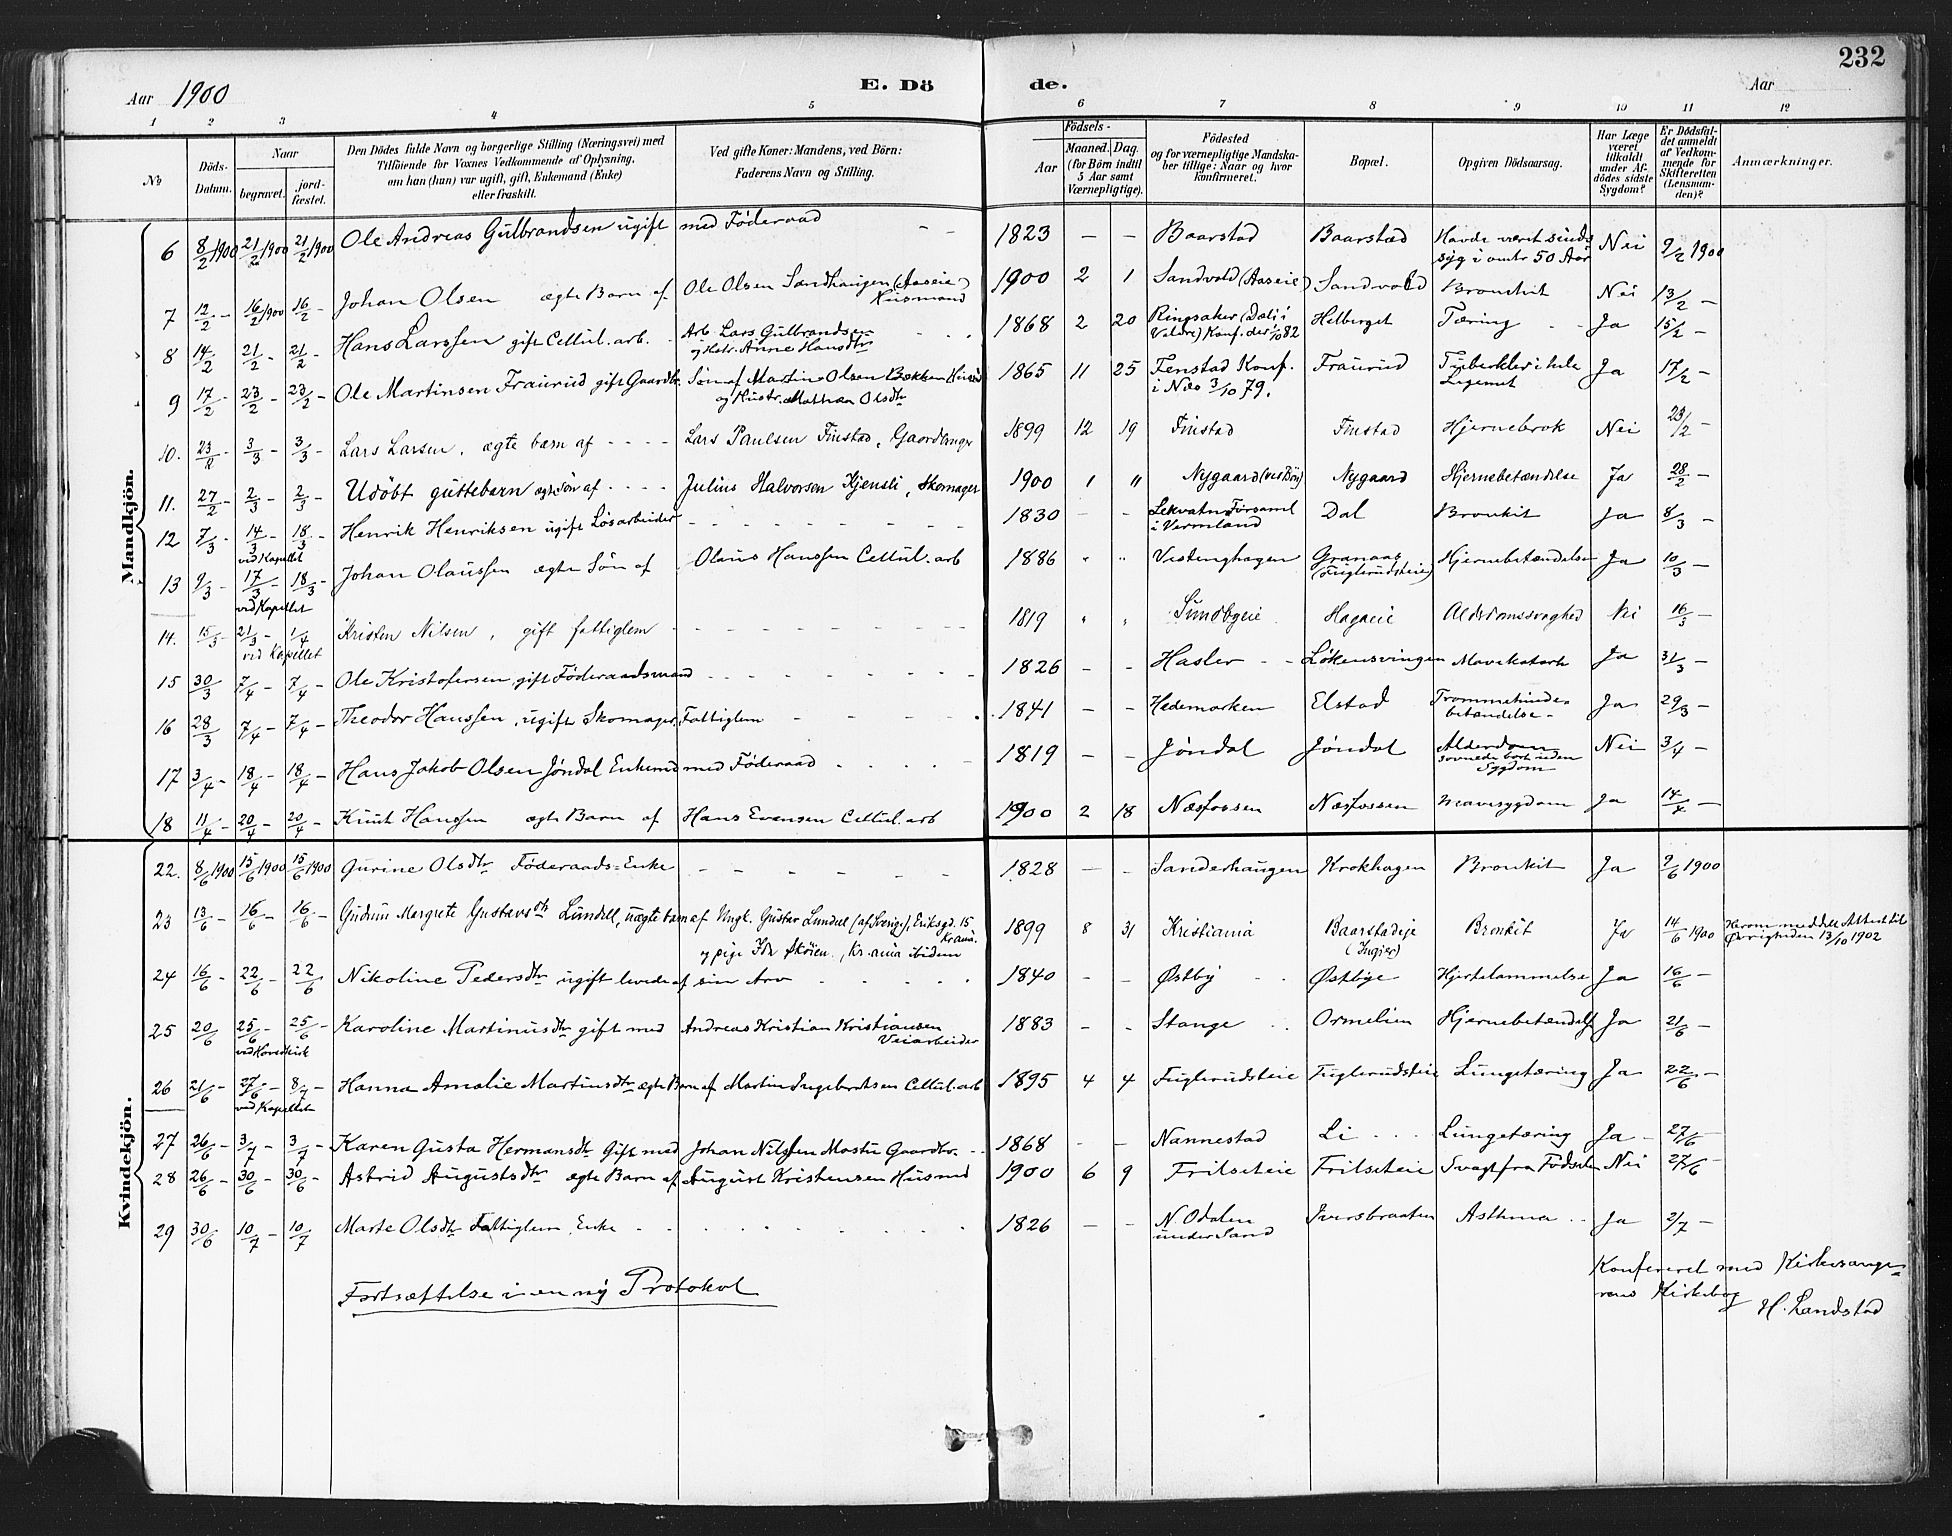 232
Aar 1900 E. Dö de. Aar
1 2 3 4 5 6 7 8 9 10 11 12
No Döds-Datum. Naar begravet. jord-fæstet. Den Dödes fulde Navn og borgerlige Stilling (Næringsvei) med Tilföiende for Voxnes Vedkommende af Oplysning, om han (hun) var ugift, gift, Enkemand (Enke) eller fraskilt. Ved gifte Koner: Mandens, ved Börn: Faderens Navn og Stilling. Födsels- Aar Maaned. Dag. (for Börn indtil 5 Aar samt Værnepligtige). Födested og for værnepligtige Mandska-ber tillige: Naar og hvor konfirmeret. Bopæl. Opgiven Dödsaarsag. Har Læge været tilkaldt under Af-dödes sidste Sygdom? Er Dödsfal-det anmeldt af Vedkom-mende for Skifteretten (Lensman-den)? Anmærkninger.
Mandkjön.
6 8/2 1900 21/2 1900 21/2 1900 Ole Andreas Gulbrandsen ugift med Föderaad – – 1823 – – Baarstad Baarstad Havde været sinds syg i omtr 50 Aar Nei 9/2 1900
7 12/2 – 16/2 1900 16/2 – Johan Olsen ægte Barn af Ole Olsen Sandhaugen (Aaseie) Husmand 1900 2 1 Sandvold (Aaseie) Sandvold Bronkit Nei 13/2 –
8 14/2 – 21/2 – 21/2 – Hans Larssen gift Cellul. arb. Arb. Lars Gulbrandsen og Hstr. Anne Hansdtr 1868 2 20 Ringsaker (Dæli i Veldre) Konf. der 1/10 82 Helberget Tæring Ja 15/2 –
9 17/2 – 23/2 – 23/2 – Ole Martinsen Fraurud gift Gaardbr. Søn af Martin Olsen Bækken Husmd og Hustr. Mathea Olsdtr 1865 11 25 Fenstad Konf. i Næs 3/10 79. Fraurud Tuberkler i hele Legemet Ja 17/2 –
10. 23/2 – 3/3 – 3/3 – Lars Larsen, ægte barn af - - - - Lars Paulsen Finstad, Gaardbruger 1899 12 19 Finstad Finstad Hjernebrok Nei 23/2 –
11. 27/2 – 2/3 – 2/3 – Udöbt guttebarn ægte søn af - - - - Julius Halvorsen Kjensli, Skomager 1900 1 " Nygaard (ved Bøn) Nygaard Hjernebetændelse Ja 28/2 –
12 7/3 – 14/3 – ved Kapellet 18/3 – Henrik Henriksen ugift Løsarbeider - - - 1830 – – Lekvatn Forsaml i Vermland Dal Bronkit Ja 8/3 –
13 9/3 – 17/3 – ved Kapellet 18/3 – Johan Olaussen ægte Søn af Olaus Hanssen Cellul. arb 1886 " " Vestenghagen Granaas (Fuglerudseie) Hjernebetændelse Ja 10/3 –
14. 15/3 – 21/3 – ved Kapellet 1/4 – Kristen Nilsen, gift fattiglem - - - 1819 " " Sundbyeie Hagaeie Alderdomssvaghed Nei 16/3 –
15 30/3 7/4 – 7/4 – Ole Kristofersen gift Föderaadsmand - - - 1826 – – Hasler - - Løkensvingen Mavekatarh Ja 31/3 –
16 28/3 7/4 – 7/4 – Theodor Hanssen, ugift Skomager, Fattiglem - - - 1841 – – Hedemarken Elstad Trommehinde-betændelse – Ja 29/3 –
17 3/4 – 18/4 – 18/4 – Hans Jakob Olsen Jøndal Enkemd med Föderaad - - - 1819 – – Jøndal Jøndal Alderdom sovnede bort uden Sygdom Nei 3/4 –
18 11/4 – 20/4 – 20/4 – Knut Hanssen ægte Barn af Hans Evensen Cellul. arb 1900 2 18 Næsfossen Næsfossen Mavesygdom Ja 14/4 –
Kvindekjön.
22. 8/6 1900 15/6 1900 15/6 1900 Gurine Olsdtr Föderaads=Enke - - - 1828 – – Sanderhaugen Krokhagen Bronkit Ja 9/6 1900
23 13/6 – 16/6 – 16/6 – Gudrun Margrete Gustavsdtr Lundell, uægte barn af Ungk. Gustav Lundell (af Sverige), Eriksgd. 15 Krania. og pige Ida Sköien, Kr.ania ibidem 1899 8 31 Kristiania Baarstadeje (Ingjer) Bronkit Ja 14/6 1900 Herom meddelt Attest til Øvrigheden 13/10 1902
24 16/6 – 22/6 – 22/6 Nikoline Pedersdtr ugift levede af sin Arv - - - 1840 – – Østby Østbye Hjertelammelse Ja 16/6 –
25 20/6 25/6 – ved Hovedkirk 25/6 – Karoline Martinusdtr gift med Andreas Kristian Kristiansen Veiarbeider 1883 – – Stange Ormelien Hjernebetændelse Ja 21/6 –
26 21/6 – 27/6 – ved Kapellet 8/7 – Hanna Amalie Martinsdtr ægte Barn af Martin Ingebretsen Cellul. arb 1895 4 4 Fuglerudseie Fuglerudseie Lungetæring Ja 22/6 –
27 26/6 – 3/7 – 3/7 – Karen Gusta Hermansdtr Gift med Johan Nilssen Mostu Gaardbr. 1868 – – Nannestad Li - - - Lungetæring Ja – 27/6 –
28 26/6 – 30/6 – 30/6 – Astrid Augustsdtr ægte Barn af August Kristensen Husmd 1900 6 9 Fritseteie Fritseteie Svagt fra Födsel Nei 27/6 –
29 30/6 10/7 – 10/7 Marte Olsdtr Fattiglem, Enke - - - 1826 – – N. Odalen under Sand Iversbraaten Asthma Ja 2/7 –
Fortsættelse i en ny Protokol
Konfereret med Kirkesange=
rens Kirkebog
H. Landstad